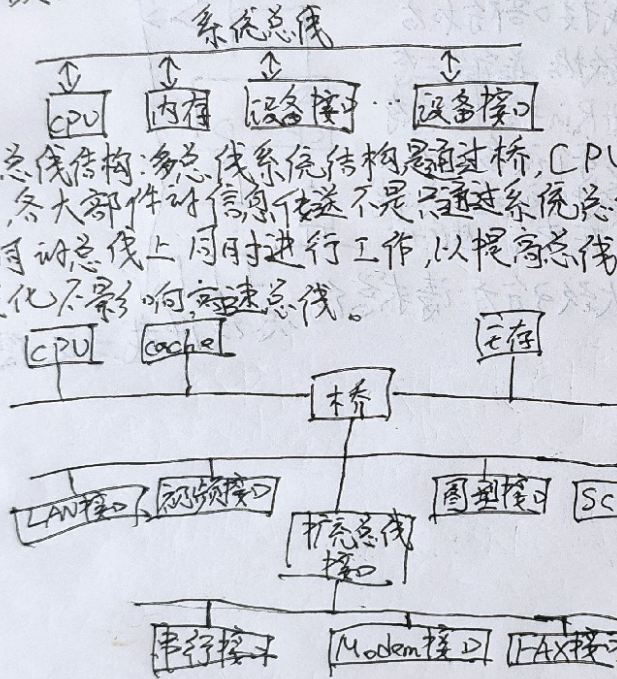 系统总线
CPU 内存 设备接口 … 设备接口
总线结构:多总线系统结构是通过桥,CPU
各大部件的信息传送不是只通过系统总
的总线上同时进行工作,以提高总线
化不影响高速总线。
CPU cache 主存
桥
LAN接口 视频接口 图型接口 SC
扩充总线
接口
串行接口 Modem接口 FAX接口